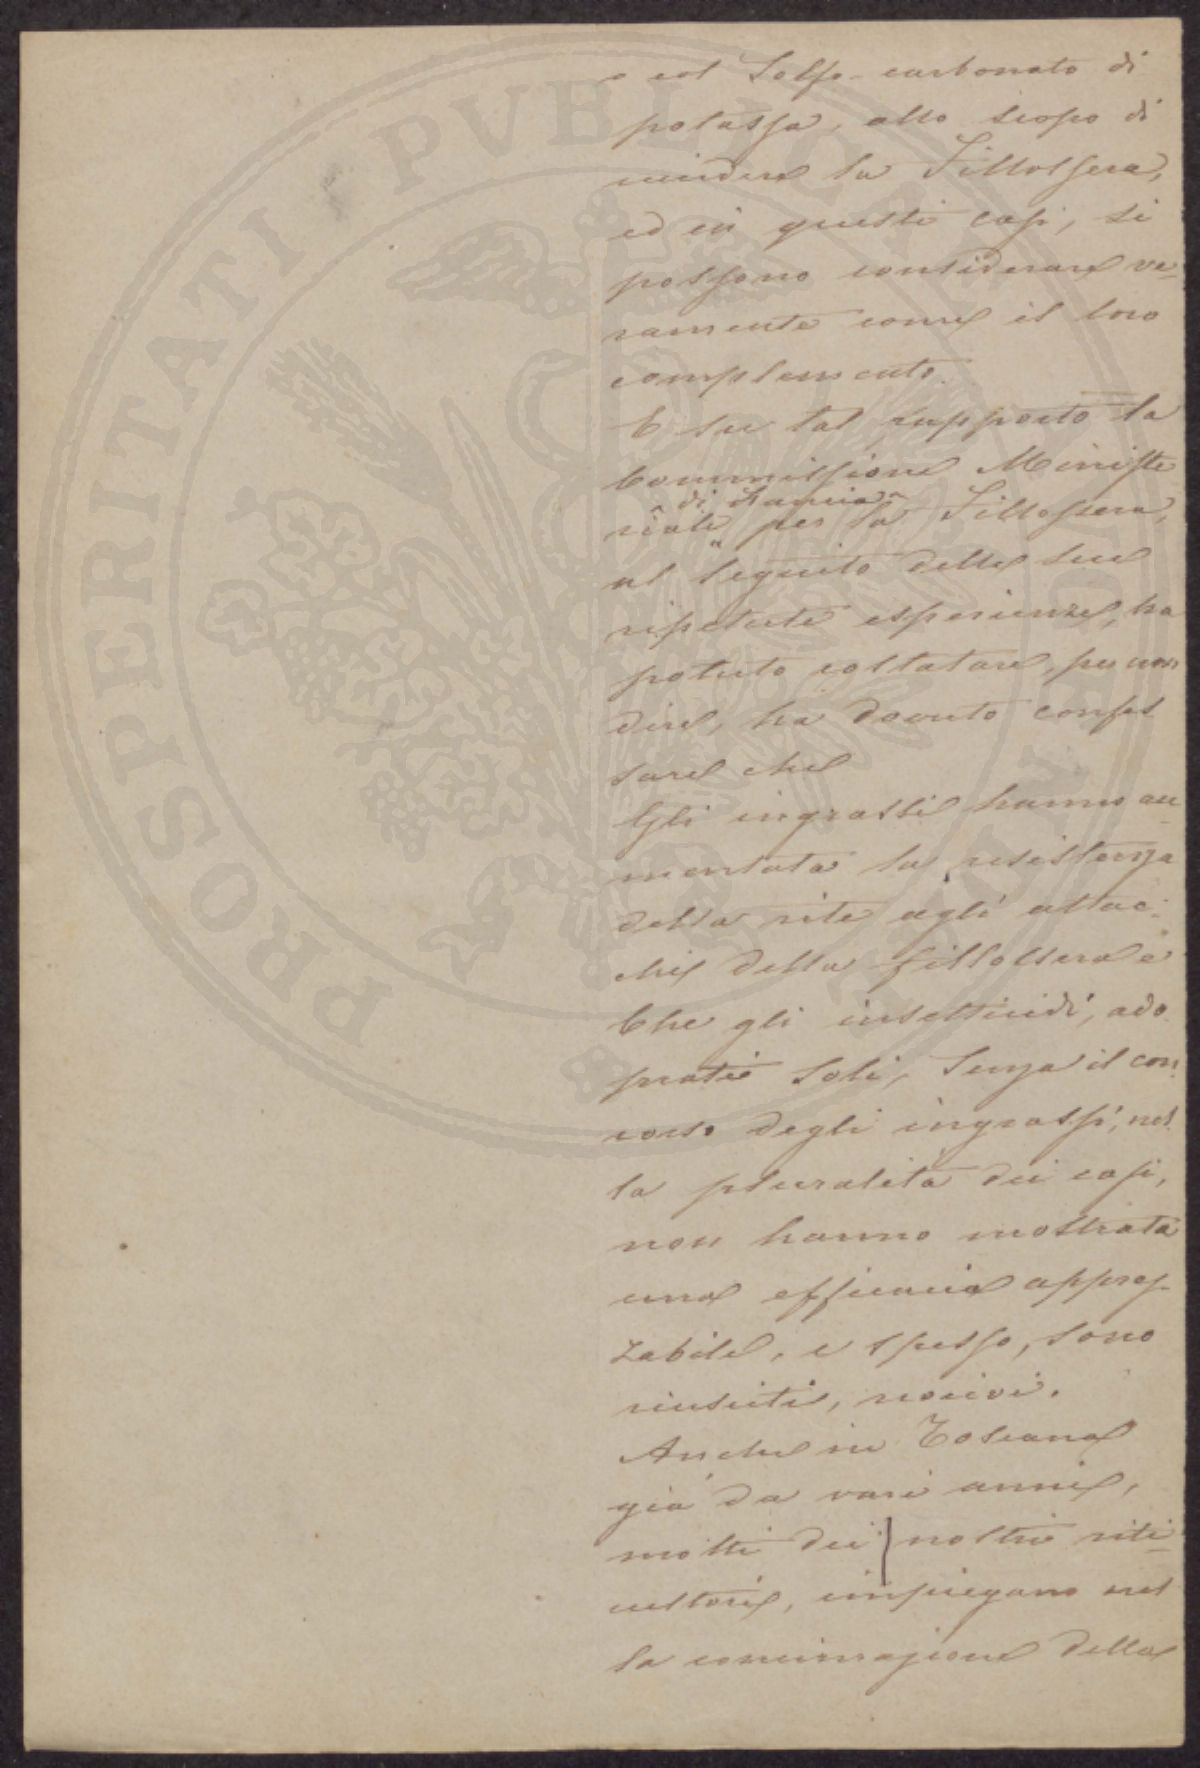 PROSPERITATI PVBLICAE
o col Solfo-carbonato di
potassa, allo scopo di
uccidere la Fillossera,
ed in questi casi, si
possono considerare ve-
ramente come il loro
complemento.
E su tal rapporto la
Commissione Ministe
riale di Francia per la Fillossera,
al seguito delle sue
ripetute esperienze, ha
potuto costatare, per non
dire, ha dovuto confes
sare che
Gli ingrassi hanno au-
mentata la resistenza
della vite agli attac-
chi della fillossera e
Che gli insetticidi, ado
prati soli, senza il con
corso degli ingrassi, nel
la pluralità dei casi,
non hanno mostrata
una efficacia apprez-
zabile, e spesso, sono
riusciti, nocivi.
Anche in Toscana
già da vari anni,
molti dei nostri viti-
cultori, impiegano nel
la concimazione della